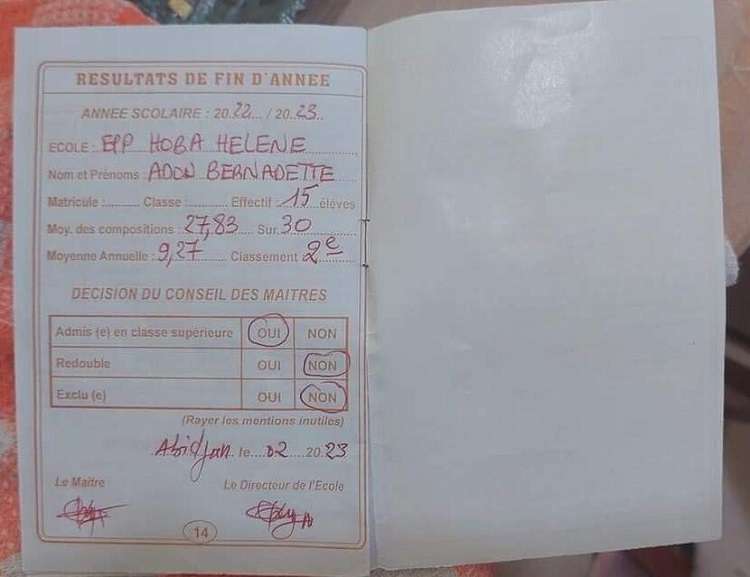 RESULTATS DE FIN D'ANNEE
ANNEE SCOLAIRE : 20.22... / 20..23..
ECOLE : EPP HOBA HELENE
Nom et Prénoms : ADON BERNADETTE
Matricule : ........... Classe : ............ Effectif : .15 élèves
Moy. des compositions : 27,83 .... Sur. 30
Moyenne Annuelle : 9,27 ...... Classement 2e
DECISION DU CONSEIL DES MAITRES
Admis (e) en classe supérieure OUI NON
Redouble OUI NON
Exclu (e) OUI NON
(Rayer les mentions inutiles)
Abidjan. le....02....20.23
Le Maître Le Directeur de l'Ecole
14